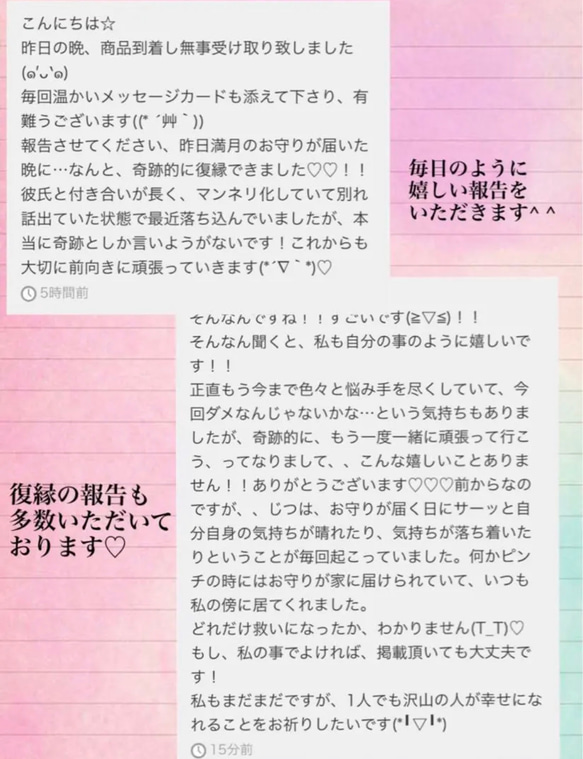 こんにちは☆
昨日の晩、商品到着し無事受け取り致しました
(๑′ᴗ‵๑)
毎回温かいメッセージカードも添えて下さり、有
難うございます((* ´艸｀))
報告させてください、昨日満月のお守りが届いた
晩に…なんと、奇跡的に復縁できました♡♡！！
彼氏と付き合いが長く、マンネリ化していて別れ
話出ていた状態で最近落ち込んでいましたが、本
当に奇跡としか言いようがないです！これからも
大切に前向きに頑張っていきます(*´∇｀*)♡
5時間前
毎日のように
嬉しい報告を
いただきます^ ^
そんなんですね！！すごいです(≧▽≦)！！
そんなん聞くと、私も自分の事のように嬉しいで
す！！
正直もう今まで色々と悩み手を尽くしていて、今
回ダメなんじゃないかな…という気持ちもありま
したが、奇跡的に、もう一度一緒に頑張って行こ
う、ってなりまして、、こんな嬉しいことありま
せん！！ありがとうございます♡♡♡前からなの
ですが、、じつは、お守りが届く日にサーッと自
分自身の気持ちが晴れたり、気持ちが落ち着いた
りということが毎回起こっていました。何かピン
チの時にはお守りが家に届けられていて、いつも
私の傍に居てくれました。
どれだけ救いになったか、わかりません(T_T)♡
もし、私の事でよければ、掲載頂いても大丈夫で
す！
私もまだまだですが、1人でも沢山の人が幸せにな
れることをお祈りしたいです(*╹▽╹*)
15分前
復縁の報告も
多数いただいて
おります♡